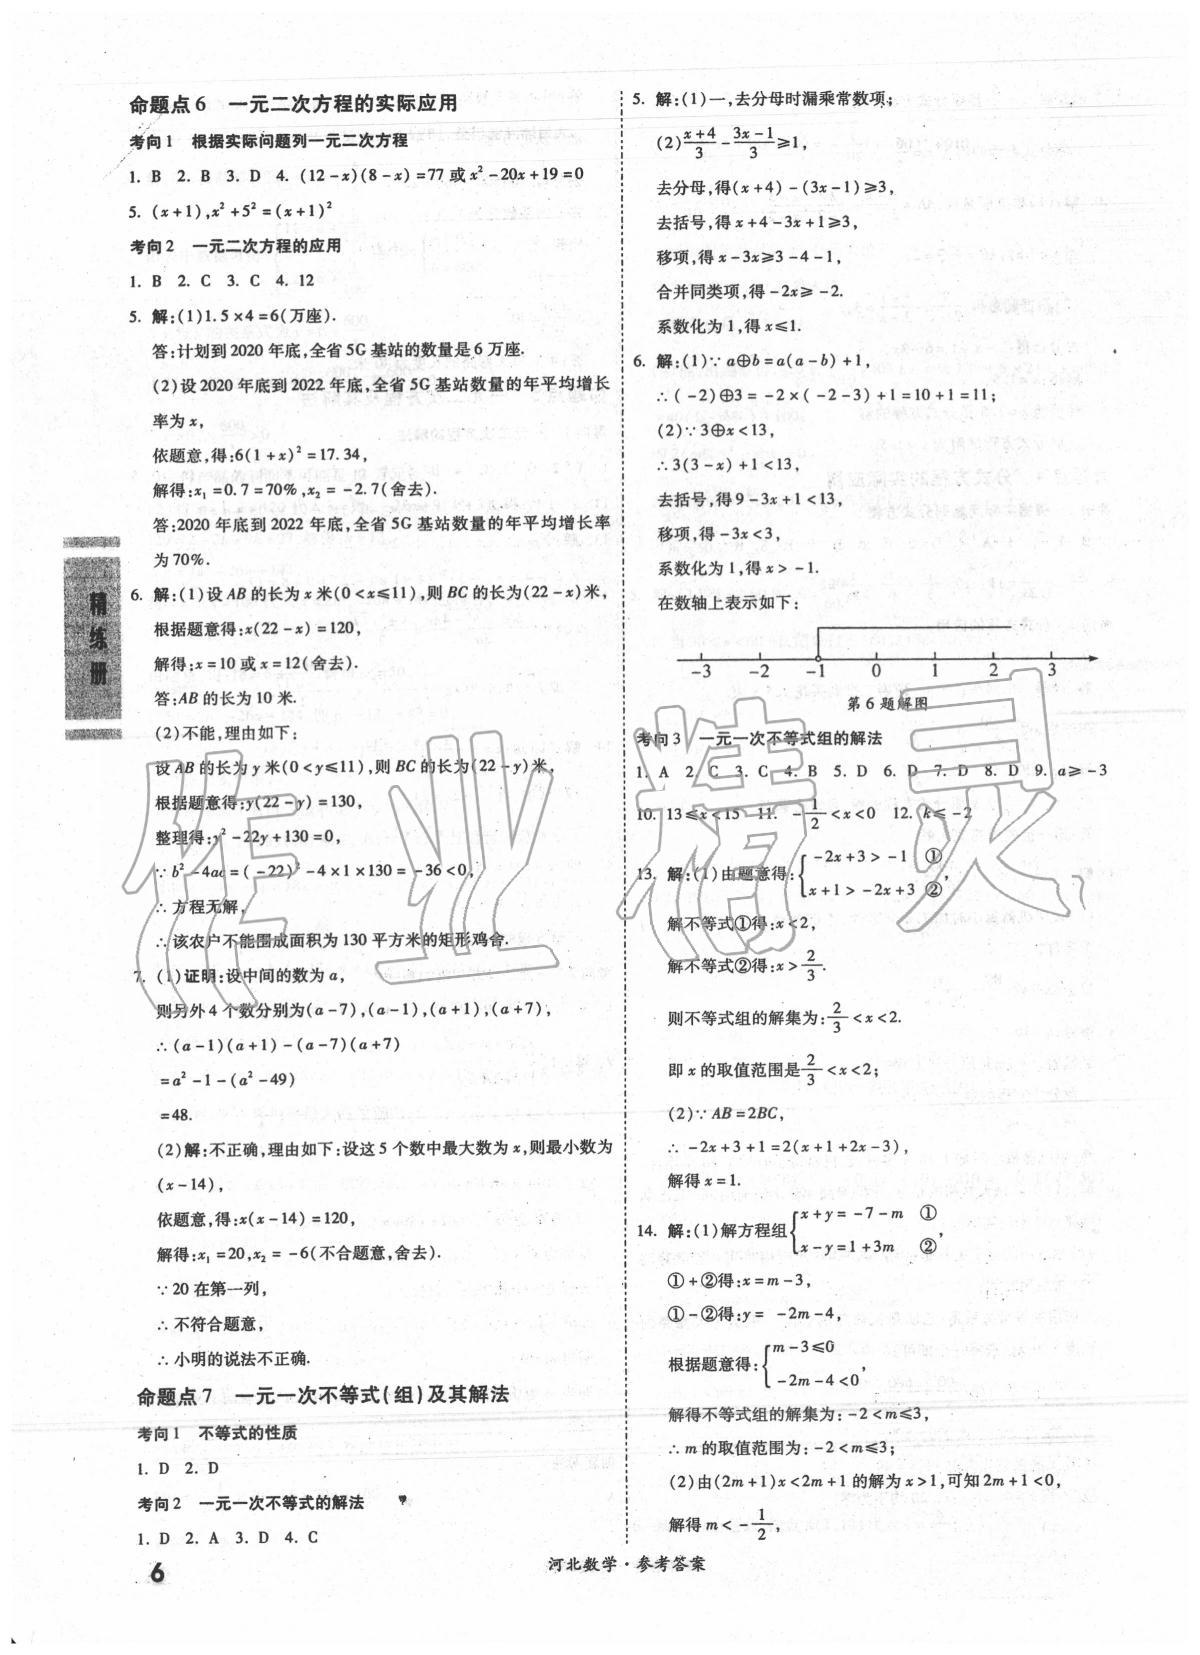 命题点6 一元二次方程的实际应用
考向1 根据实际问题列一元二次方程
1. B 2. B 3. D 4. (12-x)(8-x)=77或x²-20x+19=0
5. (x+1),x²+5²=(x+1)²
考向2 一元二次方程的应用
1. B 2. C 3. C 4. 12
5. 解:(1)1.5×4=6(万座).
答:计划到2020年底,全省5G基站的数量是6万座.
(2)设2020年底到2022年底,全省5G基站数量的年平均增长
率为x,
依题意,得:6(1+x)²=17.34,
解得:x₁=0.7=70%,x₂=-2.7(舍去).
答:2020年底到2022年底,全省5G基站数量的年平均增长率
为70%.
精练册
6. 解:(1)设AB的长为x米(0<x≤11),则BC的长为(22-x)米,
根据题意得:x(22-x)=120,
解得:x=10或x=12(舍去).
答:AB的长为10米.
(2)不能,理由如下:
设AB的长为y米(0<y≤11),则BC的长为(22-y)米,
根据题意得:y(22-y)=130,
整理得:y²-22y+130=0,
∵b²-4ac=(-22)²-4×1×130=-36<0,
∴方程无解,
∴该农户不能围成面积为130平方米的矩形鸡舍.
7. (1)证明:设中间的数为a,
则另外4个数分别为(a-7),(a-1),(a+1),(a+7),
∴(a-1)(a+1)-(a-7)(a+7)
=a²-1-(a²-49)
=48.
(2)解:不正确,理由如下:设这5个数中最大数为x,则最小数为
(x-14),
依题意,得:x(x-14)=120,
解得:x₁=20,x₂=-6(不合题意,舍去).
∵20在第一列,
∴不符合题意,
∴小明的说法不正确.
命题点7 一元一次不等式(组)及其解法
考向1 不等式的性质
1. D 2. D
考向2 一元一次不等式的解法
1. D 2. A 3. D 4. C
5. 解:(1)一,去分母时漏乘常数项;
(2)(x+4)/3-(3x-1)/3≥1,
去分母,得(x+4)-(3x-1)≥3,
去括号,得x+4-3x+1≥3,
移项,得x-3x≥3-4-1,
合并同类项,得-2x≥-2.
系数化为1,得x≤1.
6. 解:(1)∵a⊕b=a(a-b)+1,
∴(-2)⊕3=-2×(-2-3)+1=10+1=11;
(2)∵3⊕x<13,
∴3(3-x)+1<13,
去括号,得9-3x+1<13,
移项,得-3x<3,
系数化为1,得x>-1.
在数轴上表示如下:
-3 -2 -1 0 1 2 3
第6题解图
考向3 一元一次不等式组的解法
1. A 2. C 3. C 4. B 5. D 6. D 7. D 8. D 9. a≥-3
10. 13≤x<15 11. -1/2<x<0 12. k≤-2
13. 解:(1)由题意得:{-2x+3>-1 ①
x+1>-2x+3 ②,
解不等式①得:x<2,
解不等式②得:x>2/3.
则不等式组的解集为:2/3<x<2.
即x的取值范围是2/3<x<2;
(2)∵AB=2BC,
∴-2x+3+1=2(x+1+2x-3),
解得x=1.
14. 解:(1)解方程组{x+y=-7-m ①
x-y=1+3m ②,
①+②得:x=m-3,
①-②得:y=-2m-4,
根据题意得:{m-3≤0
-2m-4<0,
解得不等式组的解集为:-2<m≤3,
∴m的取值范围为:-2<m≤3;
(2)由(2m+1)x<2m+1的解为x>1,可知2m+1<0,
解得m<-1/2,
6
河北数学·参考答案
作业精灵